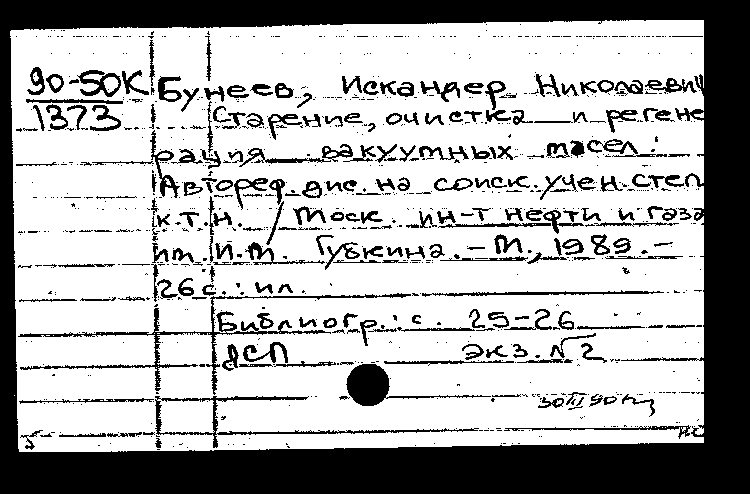 90-50К Бунеев, Искандер Николаевич
1373 Старение, очистка и регене
рация вакуумных масел:
Автореф. дис. на соиск. учен. степ
к.т.н. / Моск. ин-т нефти и газа
им. И.М. Губкина. – М., 1989. –
26 с. : ил.
Библиогр.: с. 25-26
ДСП. Экз. № 2